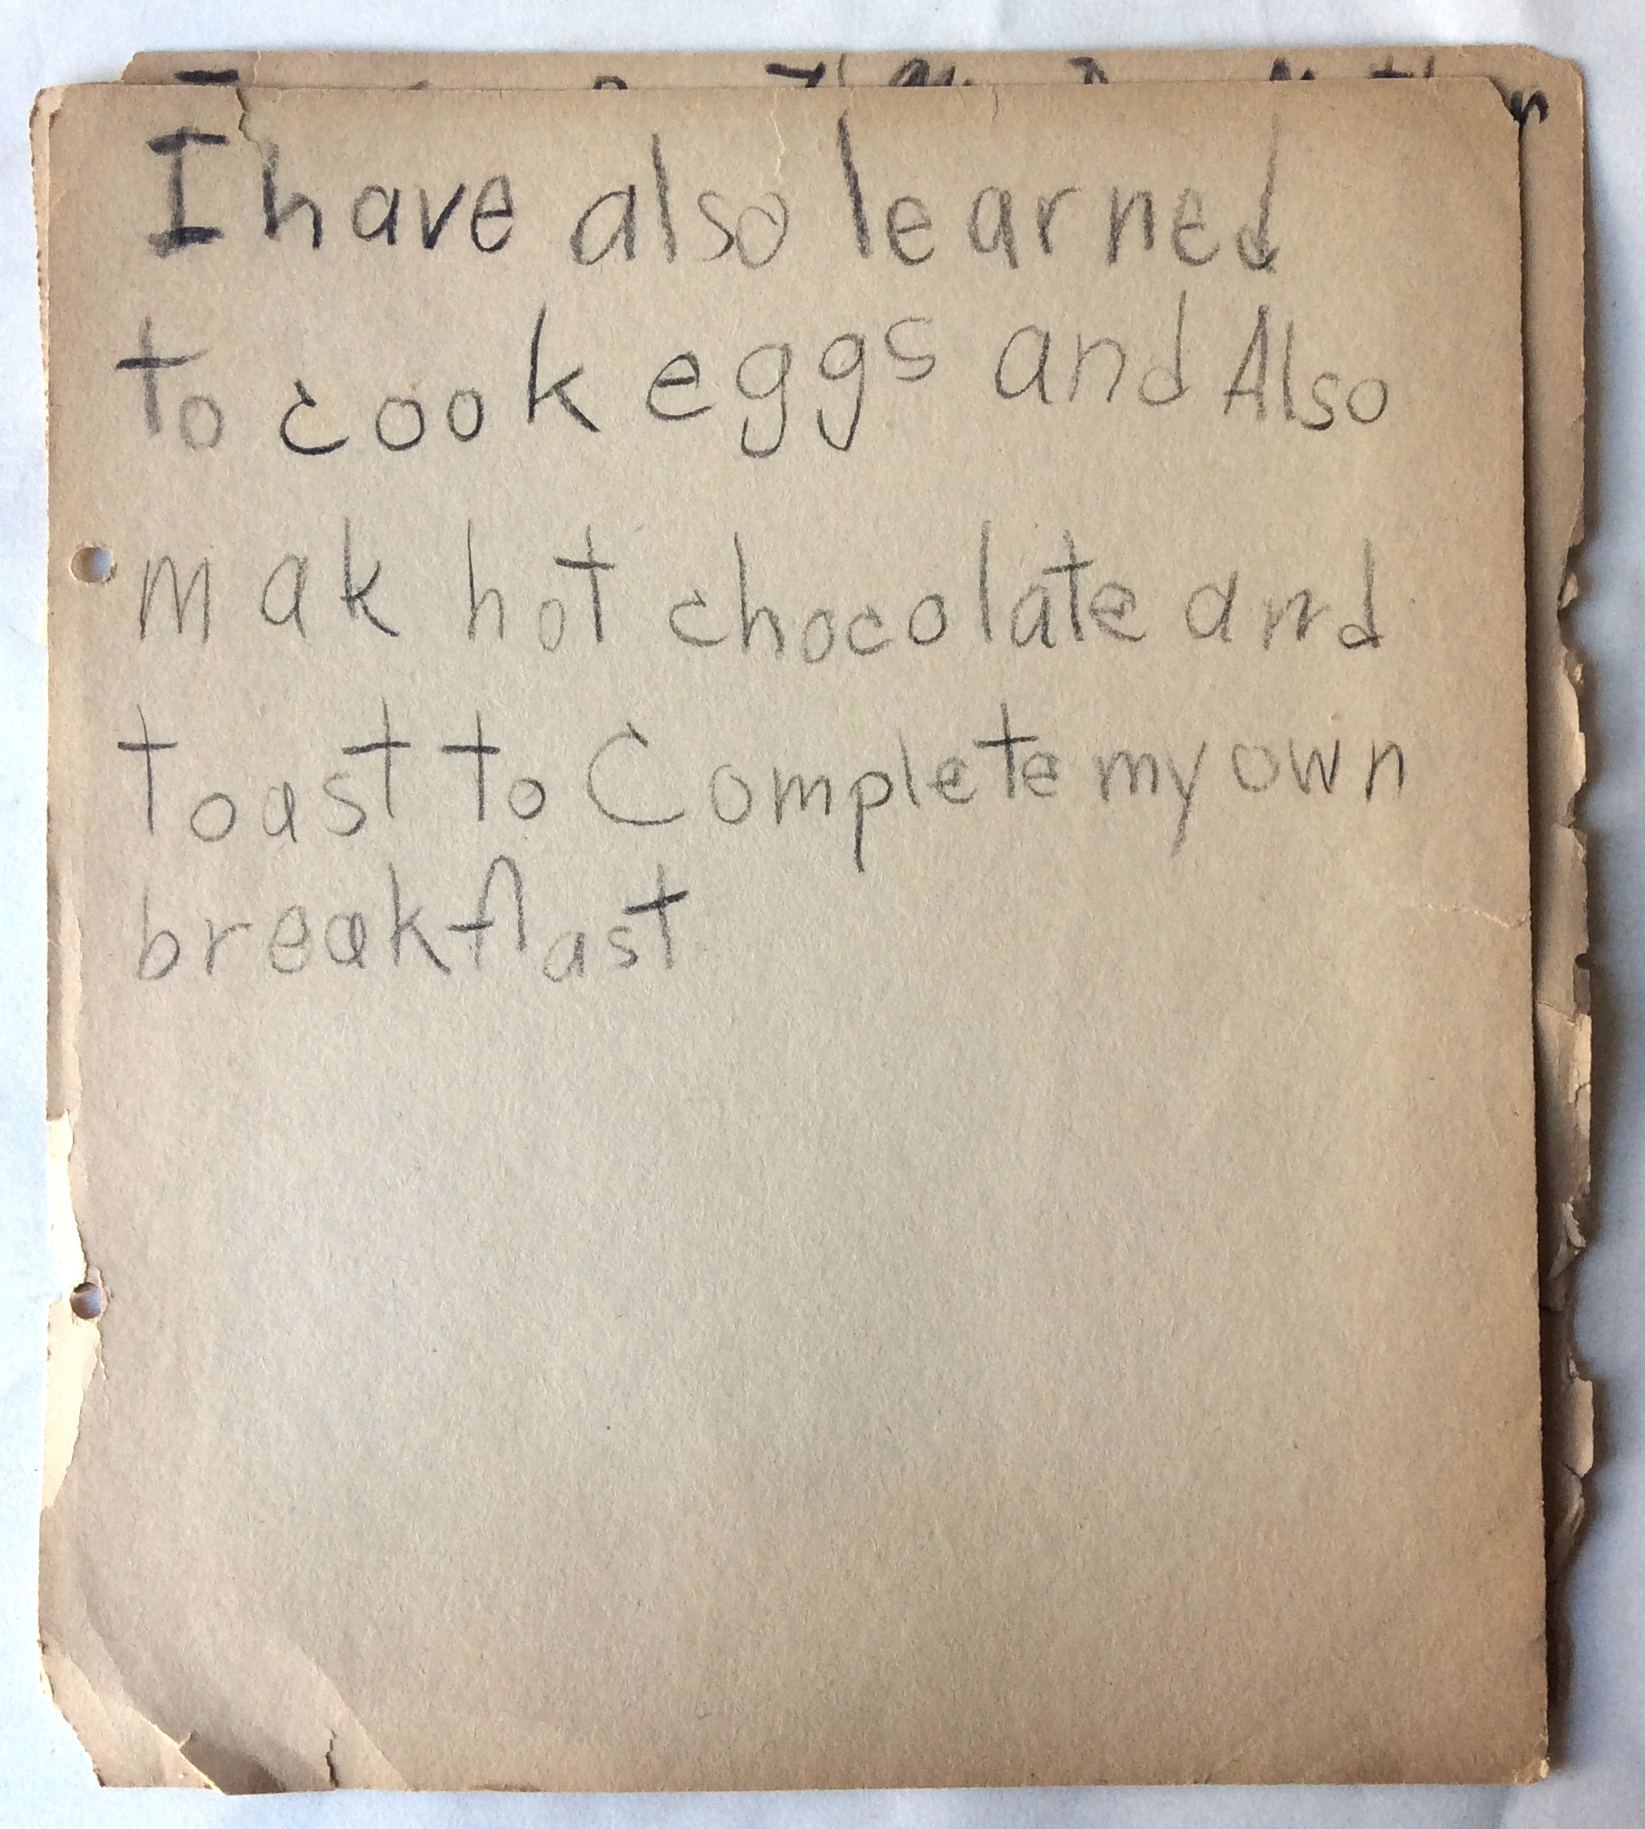 I have also learned
to cook eggs and Also
mak hot chocolate and
toast to Complete my own
breakflast